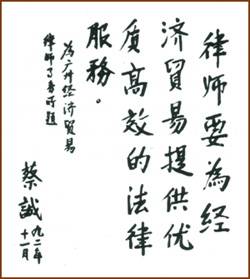 律师要為经
济貿易提供优
質高效的法律
服務。
為广州经济貿易
律师事务所題
蔡誠
九二年
十一月